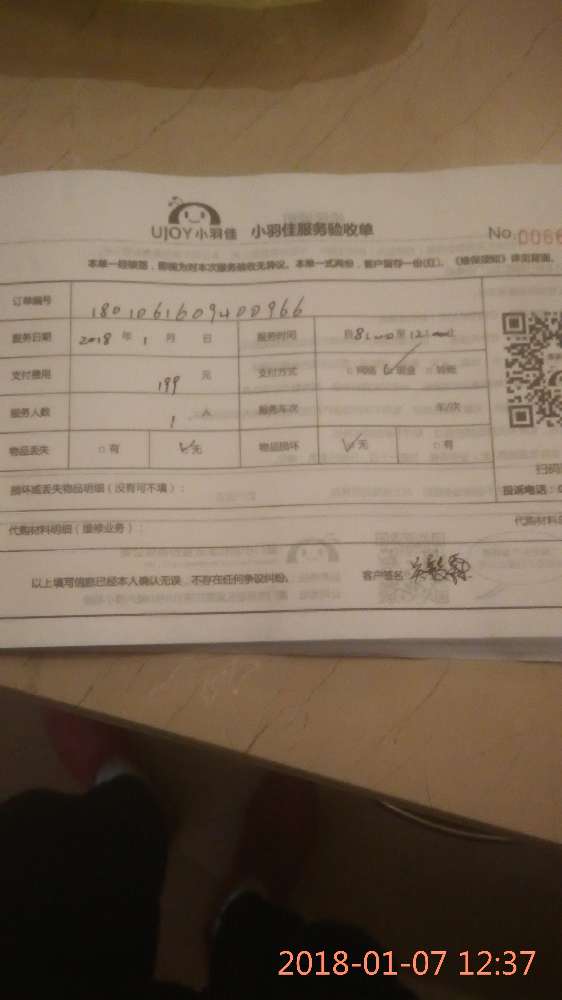 UJOY小羽佳 小羽佳服务验收单
No.0066
本单一经签题，即视为对本次服务验收无异议。本单一式两份，客户留存一份(红)。《维保须知》详见背面。
订单编号 1801061609400966
服务日期 2018 年 1 月 日 服务时间 自8:00至12:00
支付费用 199 元 支付方式 □网络 ☑现金 □转账
服务人数 1 人 服务车次 车/次
物品丢失 □有 ☑无 物品损坏 ☑无 □有
扫码
损坏或丢失物品明细（没有可不填）： 投诉电话：0
代购材料明细（维修业务）： 代购材料
以上填写信息已经本人确认无误，不存在任何争议纠纷。 客户签名：
2018-01-07 12:37